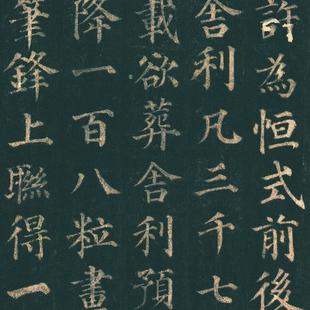 許為恒式前後
舍利凡三千七
載欲葬舍利預
降一百八粒畫
筆鋒上聯得一